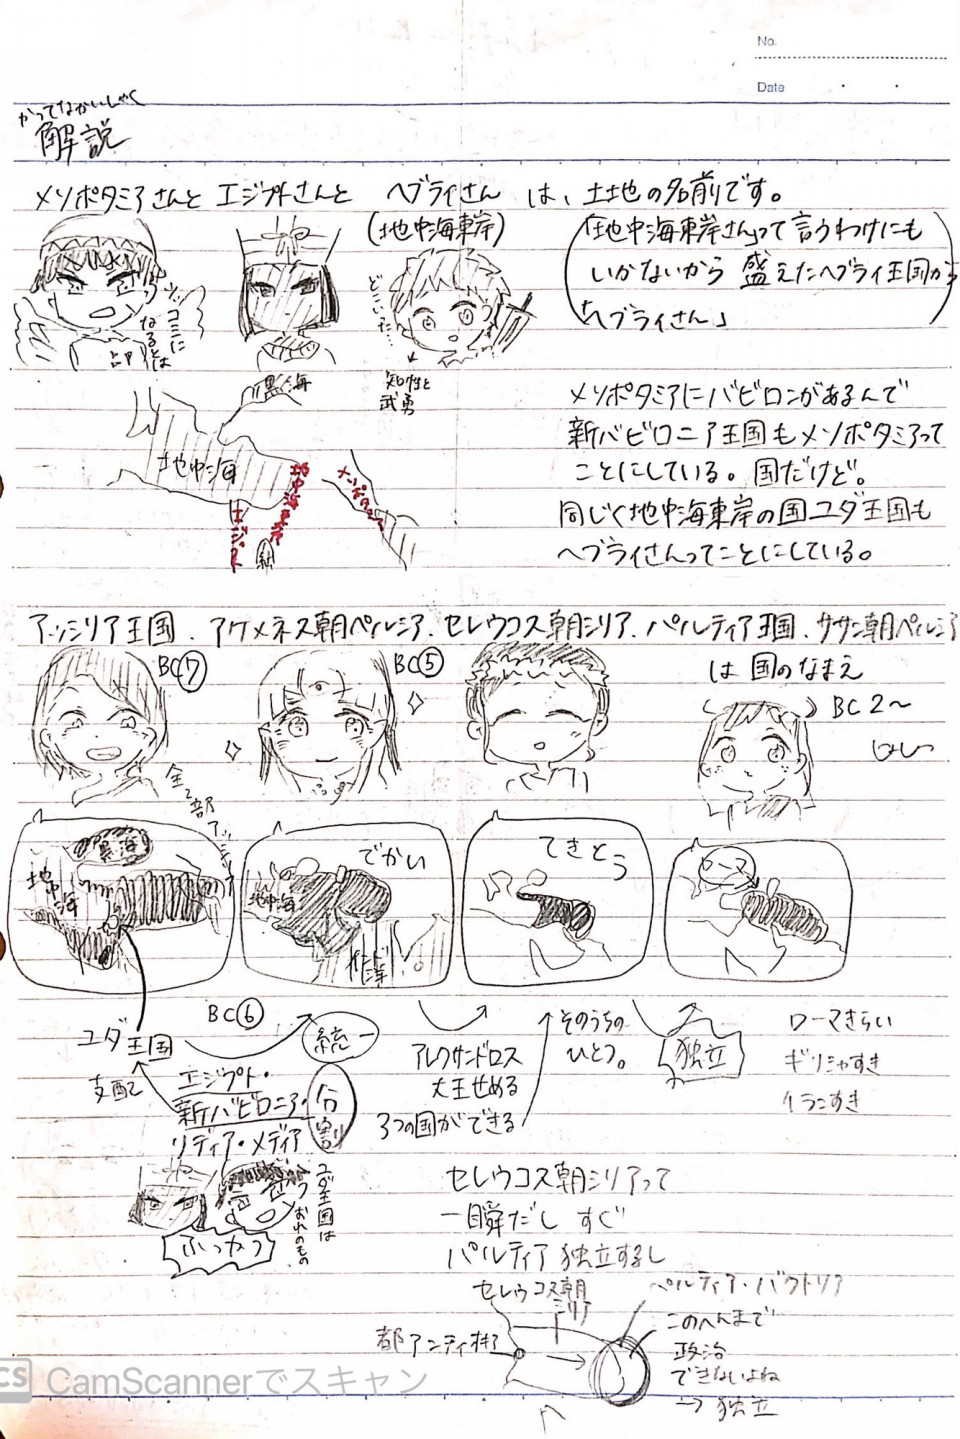 No.
Date
かってなかいしゃく
解説
メソポタミアさんと エジプトさんと ヘブライさん は、土地の名前です。
(地中海東岸)
(「地中海東岸さん」って言うわけにも
いかないから 盛えたヘブライ王国から
「ヘブライさん」)
ツッコミに
なるとは
どこいった…
知性と
武勇
黒海
地中海
エジプト
地中海東岸
メソポタミア
紅
メソポタミアにバビロンがあるんで
新バビロニア王国もメソポタミアって
ことにしている。国だけど。
同じく地中海東岸の国ユダ王国も
ヘブライさんってことにしている。
アッシリア王国、アケメネス朝ペルシア、セレウコス朝シリア、パルティア王国、ササン朝ペルシア
は 国のなまえ
BC⑦
BC⑤
BC2〜
全部
アッシリア
黒海
地中海
でかい
地中海
てきとう
ローマ
ユダ王国
BC⑥
統一
支配
エジプト・
新バビロニア・
リディア・メディア
分割
ユダ王国は
おれのもの
ふっかつ
アレクサンドロス
大王せめる
3つの国ができる
そのうちの
ひとつ。
独立
ローマきらい
ギリシャすき
イランすき
セレウコス朝シリアって
一瞬だし すぐ
パルティア 独立するし
セレウコス朝
シリア
パルティア・バクトリア
都アンティオキア
このへんまで
政治
できないよね
→ 独立
CS CamScannerでスキャン